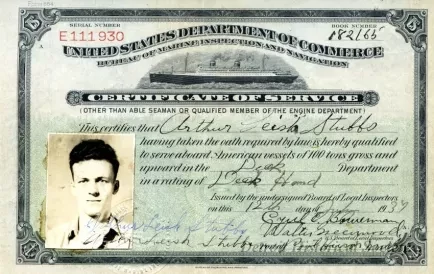 SERIAL NUMBER
E111930
BOOK NUMBER
182165
UNITED STATES DEPARTMENT OF COMMERCE
BUREAU OF MARINE INSPECTION AND NAVIGATION
CERTIFICATE OF SERVICE
(OTHER THAN ABLE SEAMAN OR QUALIFIED MEMBER OF THE ENGINE DEPARTMENT)
This certifies that Arthur Leish Stubbs
having taken the oath required by law is hereby qualified
to serve aboard American vessels of 100 tons gross and
upward in the Deck Department
in a rating of Deck Hand
Issued by the undersigned Board of Local Inspectors
on this 12th day of 193
Walter
Leish Stubbs
Stubbs